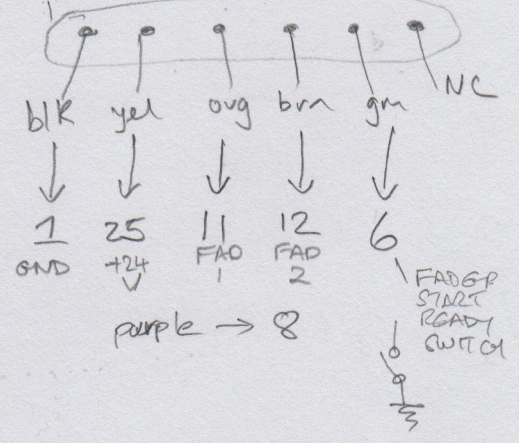 blk yel org brn grn NC
1 25 11 12 6
GND +24 V FAD 1 FAD 2
FADER
START
READY
SWITCH
purple → 8